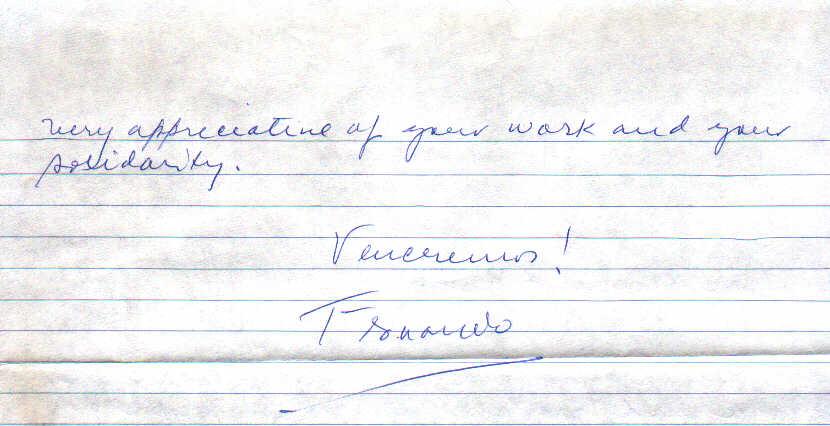 very appreciative of your work and your
solidarity.
Venceremos!
Fernando